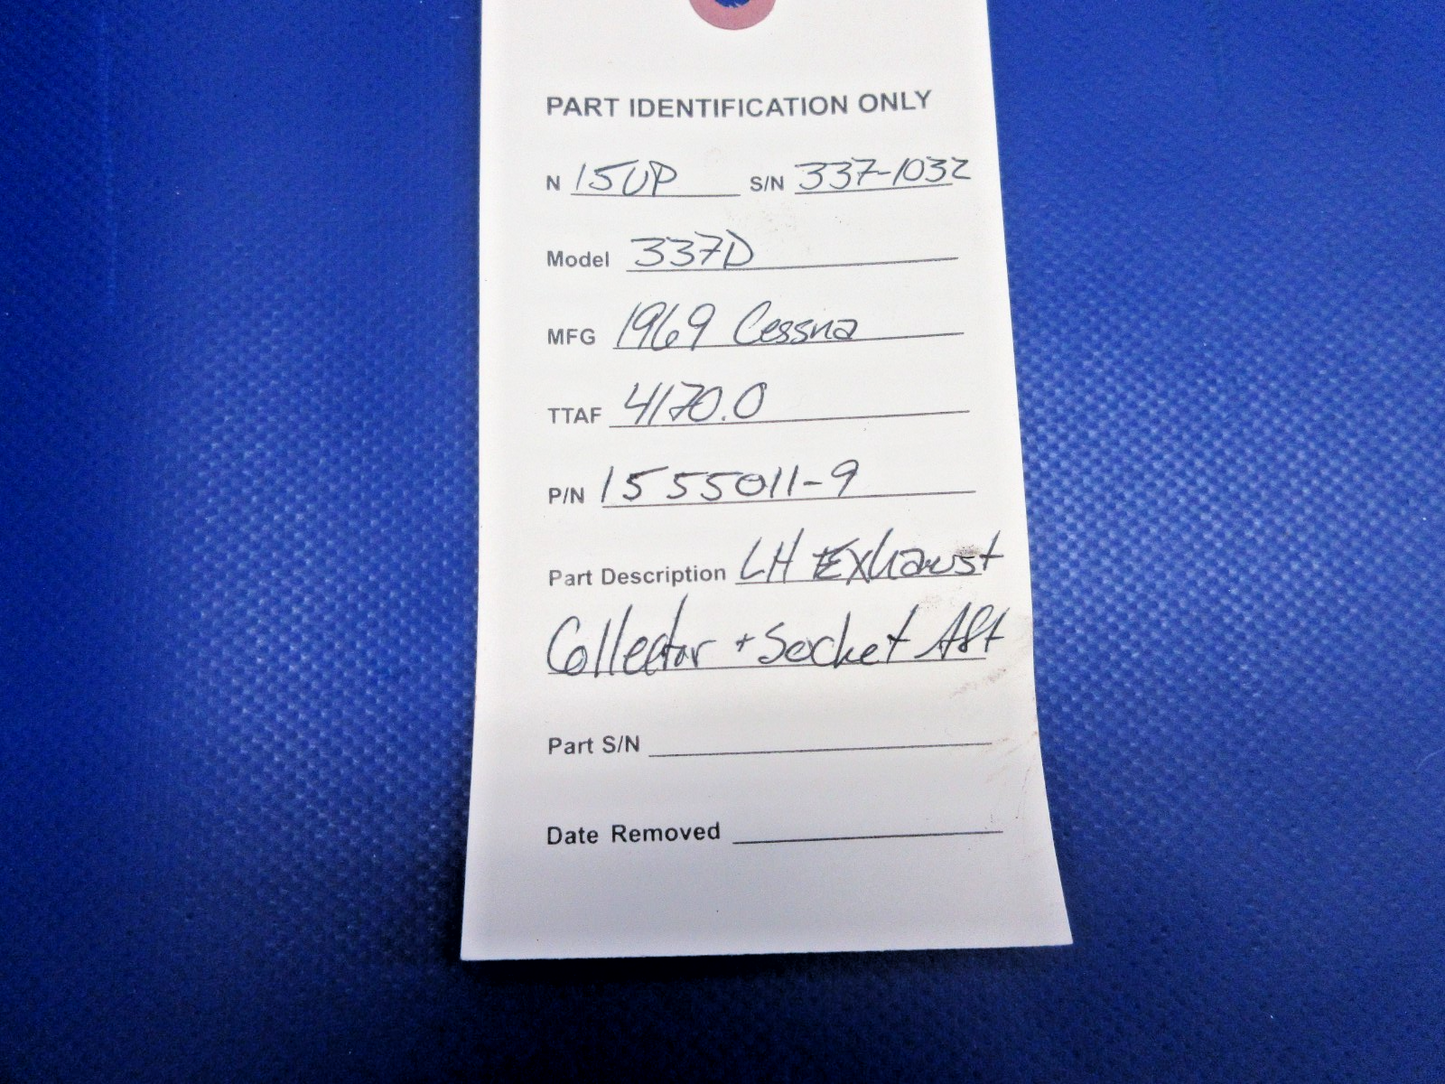 PART IDENTIFICATION ONLY
N 150P S/N 337-1032
Model 337D
MFG 1969 Cessna
TTAF 4170.0
P/N 1555011-9
Part Description LH Exhaust
Collector + Socket Aft
Part S/N
Date Removed